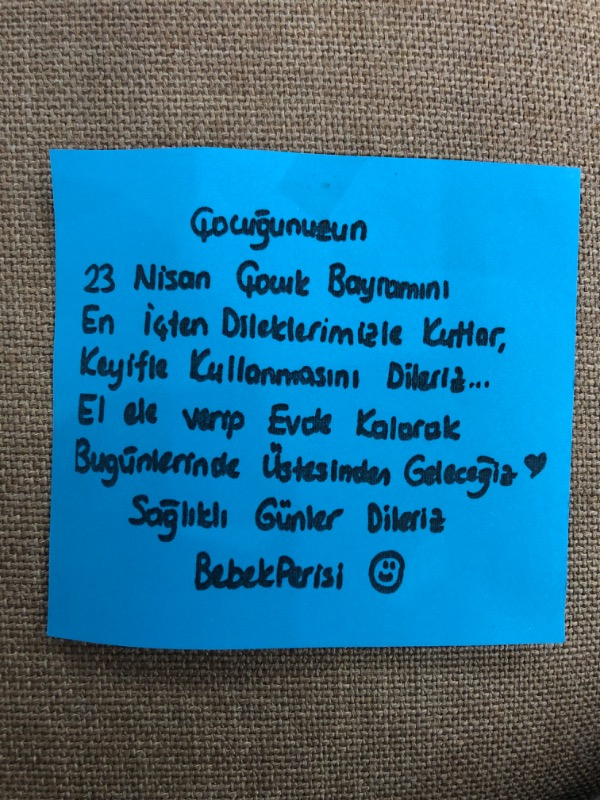 Çocuğunuzun
23 Nisan Çocuk Bayramını
En İçten Dileklerimizle Kutlar,
Keyifle Kullanmasını Dileriz...
El ele verip Evde Kalarak
Bugünlerinde Üstesinden Geleceğiz ♥
Sağlıklı Günler Dileriz
BebekPerisi ☺